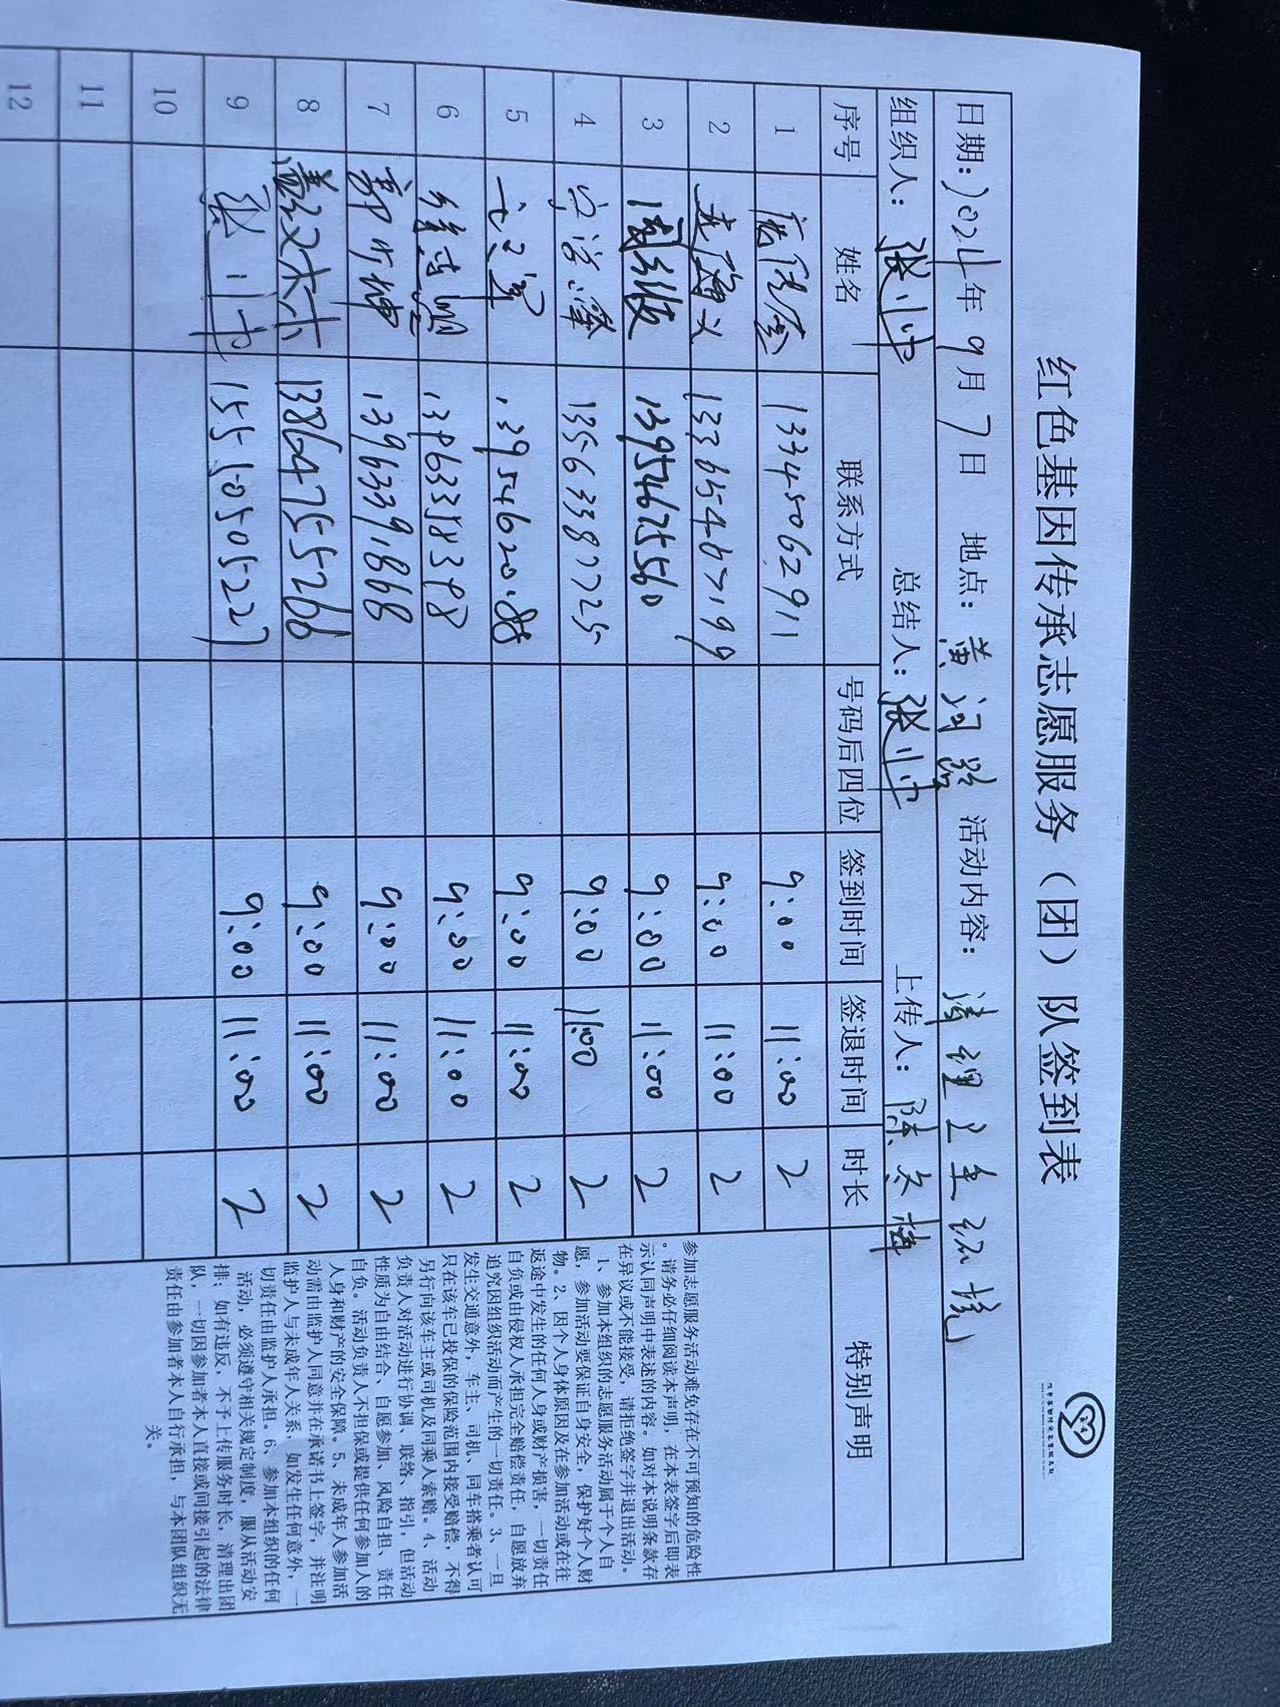 红色基因传承志愿服务（团）队签到表
日期：2024年9月7日 地点：黄河路 活动内容：清理卫生环境
组织人：张小中 总结人：张小中 上传人：陈冬梅
序号 姓名 联系方式 号码后四位 签到时间 签退时间 时长 特别声明
1 13345062911 9:00 11:00 2
2 13365467199 9:00 11:00 2
3 13954675560 9:00 11:00 2
4 13563387725 9:00 11:00 2
5 9:00 11:00 2
6 13963358398 9:00 11:00 2
7 13963391868 9:00 11:00 2
8 13864755266 9:00 11:00 2
9 张小中 15505505227 9:00 11:00 2
10
11
12
参加志愿服务活动难免存在不可预知的危险性
。请务必仔细阅读本声明，在本表签字后即表
示认同声明中表述的内容。如对本说明条款存
在异议或不能接受，请拒绝签字并退出活动。
1、参加本组织的志愿服务活动属于个人自
愿，参加活动要保证自身安全，保护好个人财
物。2、因个人身体原因及在参加活动或在往
返途中发生的任何人身或财产损害，一切责任
自负或由侵权人承担完全赔偿责任，自愿放弃
追究因组织活动而产生的一切责任。3、一旦
发生交通意外，车主、司机、同车搭乘者认可
只在该车已投保的保险范围内接受赔偿，不得
另行向该车主或司机及同乘人索赔。4、活动
负责人对活动进行协调、联络、指引，但活动
性质为自由结合、自愿参加、风险自担、责任
自负。活动负责人不担保或提供任何参加人的
人身和财产的安全保障。5、未成年人参加活
动需由监护人同意并在承诺书上签字，并注明
监护人与未成年人关系，如发生任何意外，一
切责任由监护人承担。6、参加本组织的任何
活动，必须遵守相关规定制度，服从活动安
排；如有违反，不予上传服务时长，清理出团
队，一切因参加者本人直接或间接引起的法律
责任由参加者本人自行承担，与本团队组织无
关。